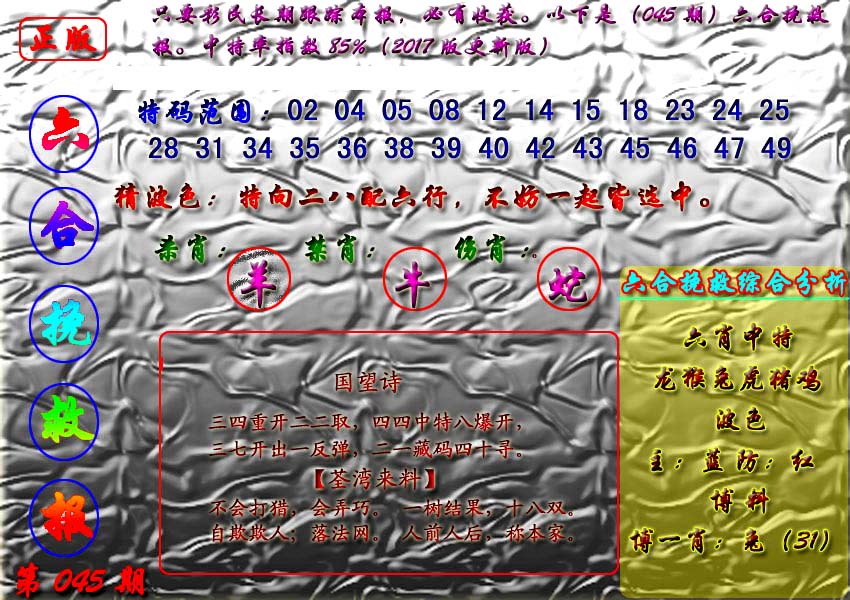 正版
只要彩民长期跟踪本报，必有收获。以下是（045期）六合挽救
报。中特率指数85%（2017版更新版）
六合挽救报
第045期
特码范围：02 04 05 08 12 14 15 18 23 24 25
28 31 34 35 36 38 39 40 42 43 45 46 47 49
猜波色：特向二八配六行，不妨一起皆选中。
杀肖：羊 禁肖：牛 伤肖：蛇。
国望诗
三四重开二二取，四四中特八爆开，
三七开出一反弹，二一藏码四十寻。
【荃湾来料】
不会打猎，会弄巧。 一树结果，十八双。
自欺欺人；落法网。 人前人后，称本家。
六合挽救综合分析
六肖中特
龙猴兔虎猪鸡
波色
主：蓝防：红
博料
博一肖：兔（31）